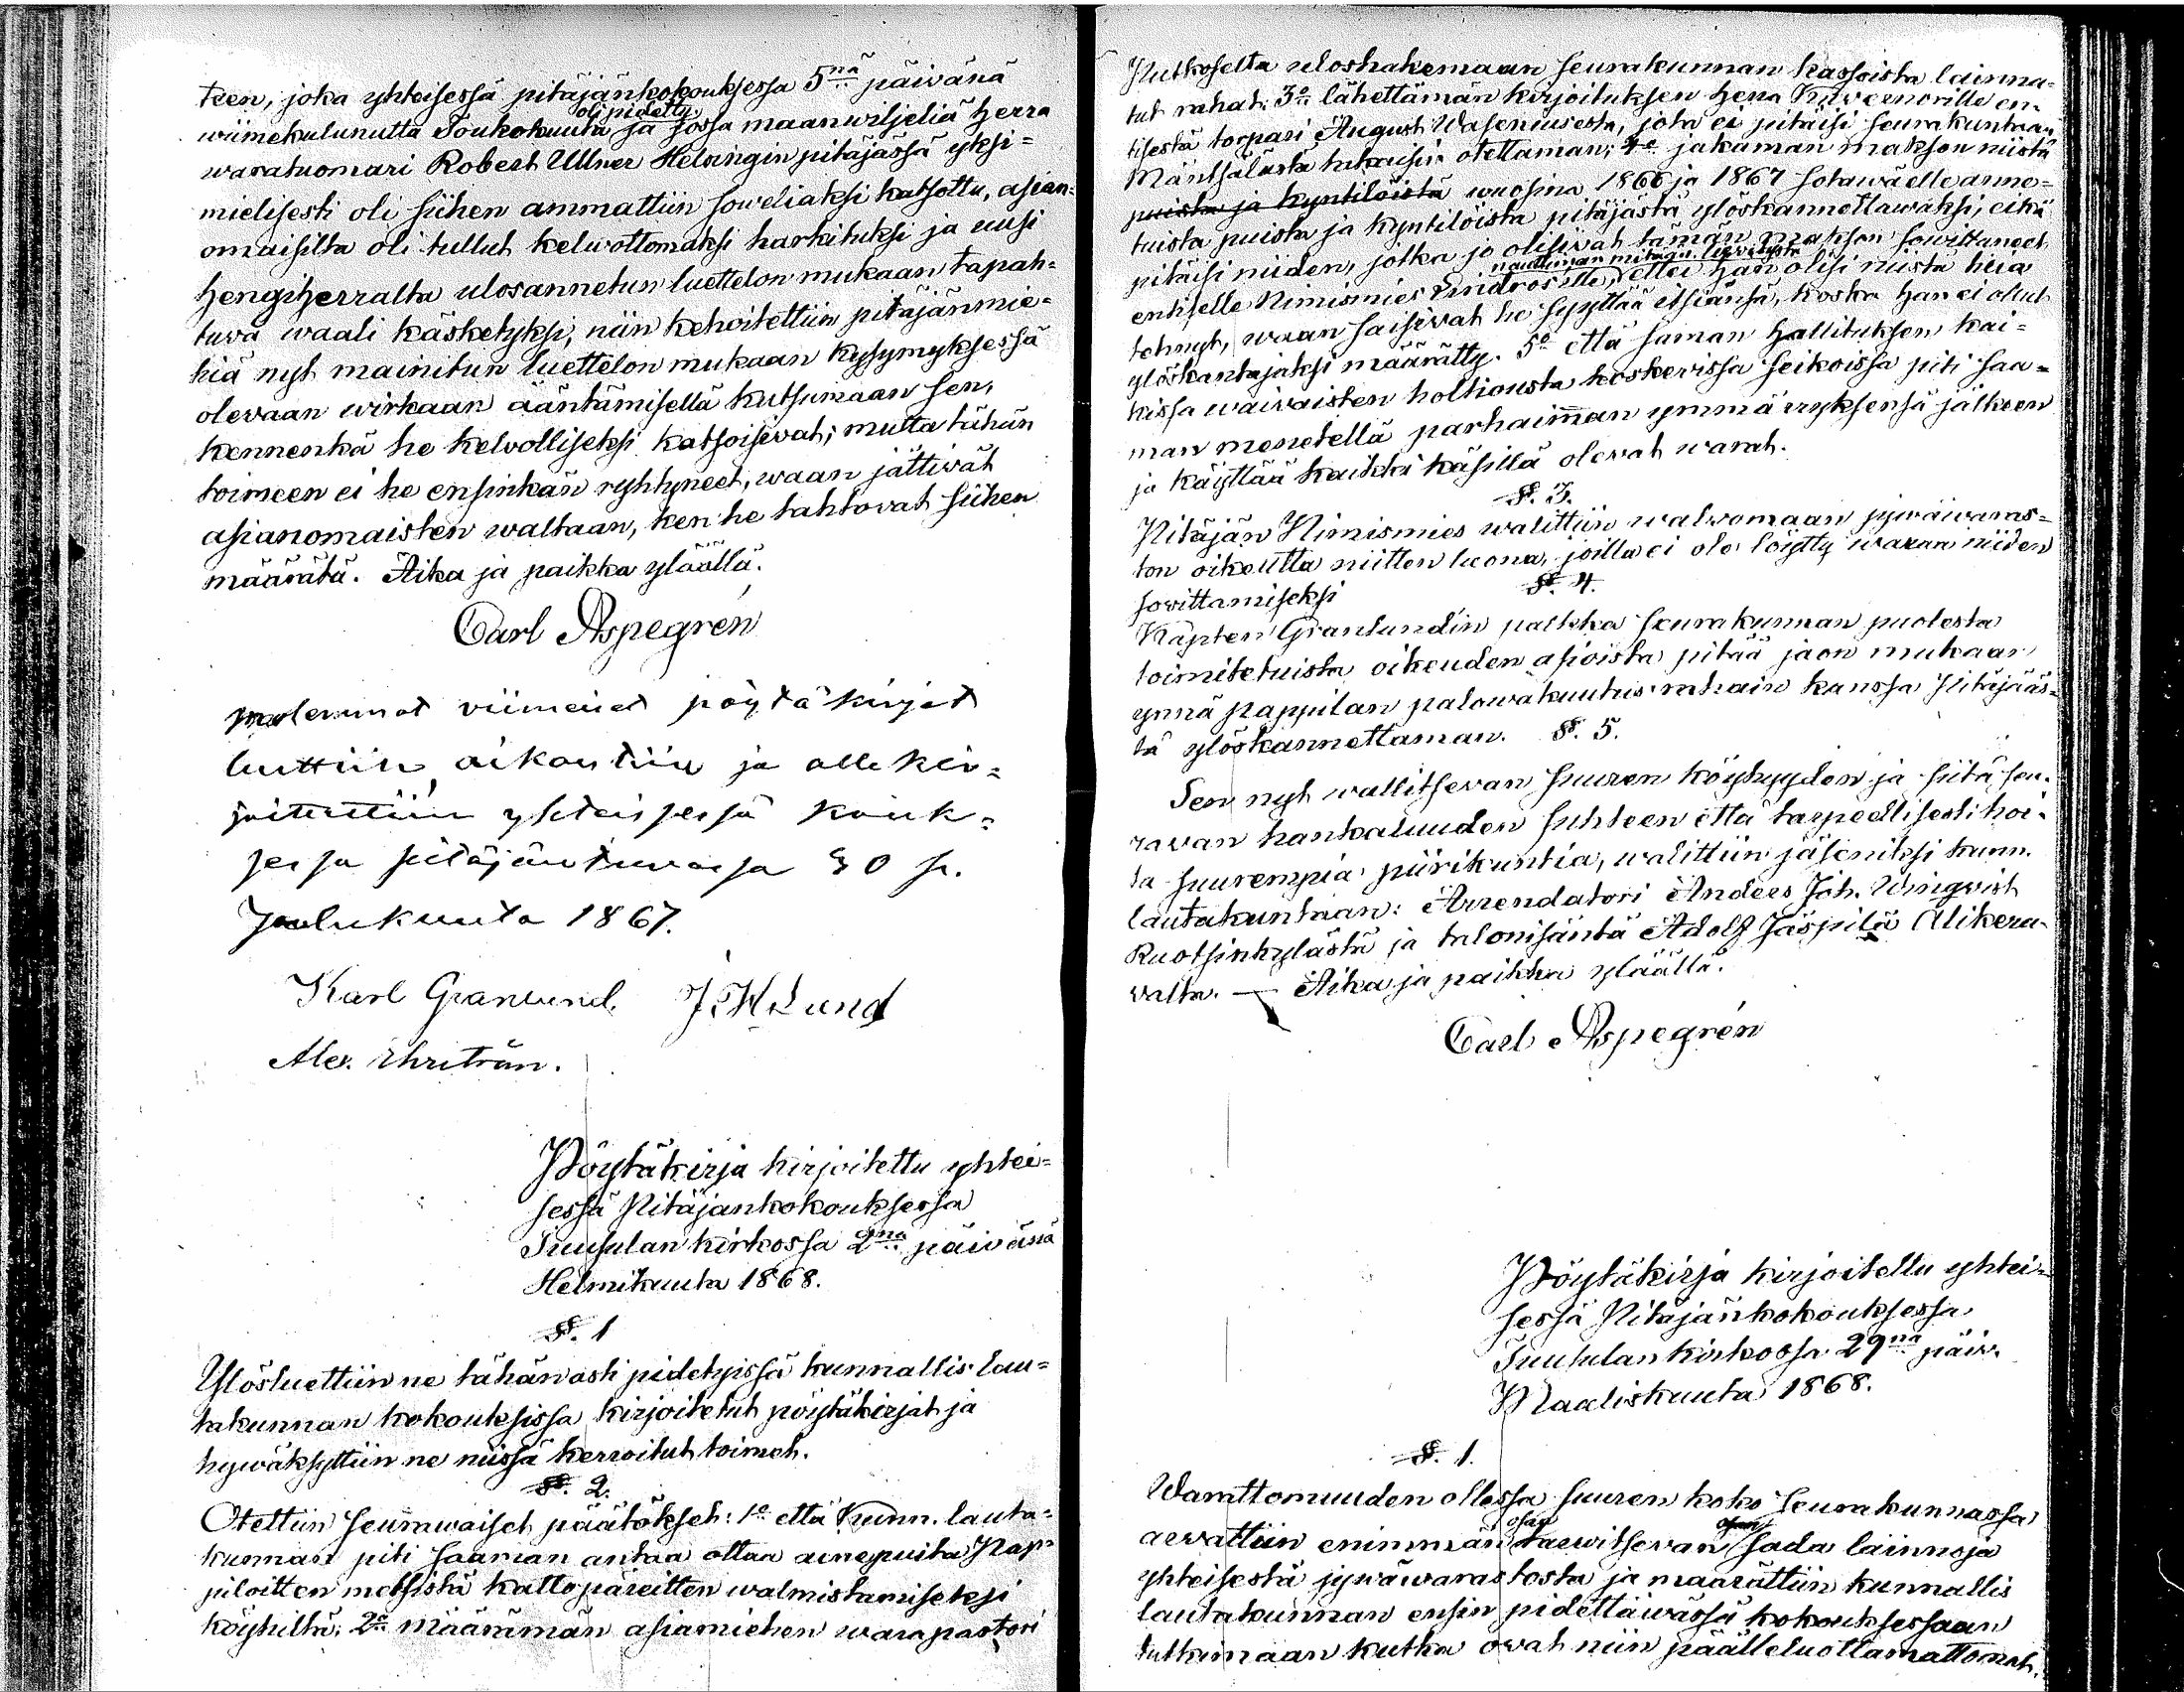 teen, joka yhteisessä pitäjänkokouksessa 5nä päivänä
oli pidetty
wiimekulunutta Toukokuuta, ja jossa maanwiljeliä Herra
waratuomari Robert Ullner Helsingin pitäjässä yksi=
mielisesti oli siihen ammattiin soweliaksi katsottu, asian=
omaisilta oli tullut kelwottomaksi harkituksi ja uusi
Hengiherralta ulosannetun luettelon mukaan tapah=
tuwa waali käsketyksi, niin kehoitettiin pitäjänmie=
hiä nyt mainitun luettelon mukaan kysymyksessä
olevaan wirkaan ääntämisellä kutsumaan sen,
kennenkä he kelvolliseksi katsoisivat; mutta tähän
toimeen ei he ensinkän ryhtyneet, waan jättiwät
asianomaisten waltaan, ken he tahtovat siihen
määrätä. Aika ja paikka ylläällä.
Carl Aspegrén
molemmat viimeiset pöytäkirjat
luettiin, oikaistiin ja allekir=
joitettiin yhteisessä kouk=
sessa pitäjäntuvassa 30 p.
Joulukuuta 1867.
Karl Granlund. J. H. Lund
Alex.
Pöytäkirja kirjoitettu yhtei=
sessä Pitäjänkokouksessa
Tuusulan kirkossa 2na päivänä
Helmikuuta 1868.
§. 1
Ylösluettiin ne tähänasti pidetyissä kunnallis lau=
takunnan kokouksissa kirjoitetut pöytäkirjat ja
hywäksyttiin ne niissä kerroitut toimet.
§. 2.
Otettiin seurawaiset päätökset: 1o että Kunn. lauta=
kunnan piti saaman antaa ottaa ainepuita Pap=
piloitten metsistä kattopäreitten walmistamiseksi
köyhiltä; 2o määrämän asiamiehen warapastori
Putkoselta uloshakemaan seurakunnan kassoista lainna=
tut rahat; 3o lähettämän kirjoituksen Herra Kuvernörille en=
tisestä torpari August Waseniusesta, jota ei pitäisi seurakuntaan
Mäntsälästä takaisin otettaman; 4o jakaman makson niistä
puista ja kyntilöistä wuosina 1866 ja 1867 sotawäelle anne=
tuista puista ja kyntilöista pitäjästä ylöskannettawaksi, eikä
pitäisi niiden, jotka jo olisiwat tämän makson sowittaneet
nauttiman mitään liewitystä
entiselle Nimismies Lindrosille, ettei hän olisi niistä tiliä
tehnyt, waan saisiwat he syyttää itsiänsä, koska han ei ollut
ylöskantajaksi määrätty. 5o että saman Hallituksen kai=
kissa waivaisten holhousta koskevissa seikoissa piti saa=
man menetellä parhaimman ymmärryksensä jälkeen
ja käyttää kaikki käsillä olevat warat.
§. 3.
Pitäjän Nimismies walittiin walwomaan jywäwaras=
ton oikeutta niitten luona, joilla ei ole löytty waraa niiden
sowittamiseksi
§. 4.
Käpten Granlundin palkka seurakunnan puolesta
toimitetuista oikeuden asioista pitää jaon mukaan
ynnä pappilan palowakuutus rahain kanssa Pitäjääs=
tä ylöskannettaman. §. 5.
Sen nyt wallitsevan suuren köyhyyden ja siitä seu=
ravan hankaluuden suhteen että tarpeellisesti hoi=
ta suurempia piirikuntia, walittiin jäseniksi kunn.
lautakuntaan: Arrendatori Anders Joh. Wingvist
Ruotsinkylästä ja talonisäntä Adolf Jäspilä Alikera=
valta. — Aika ja paikka ylläällä.
Carl Aspegrén
Pöytäkirja kirjoitettu yhtei=
sessä Pitäjänkokouksessa
Tuusulan kirkossa 29nä päiv.
Maaliskuuta 1868.
§. 1.
Warattomuuden ollessa suuren koko seurakunnassa
osan
arvattiin enimmän tarwitsevan saada lainnoja
yhteisestä jywäwarastosta ja maarättiin kunnallis
lautakunnan ensin pidettäwässä kokouksessaan
tutkimaan kutka ovat niin päälleluottamattomat,